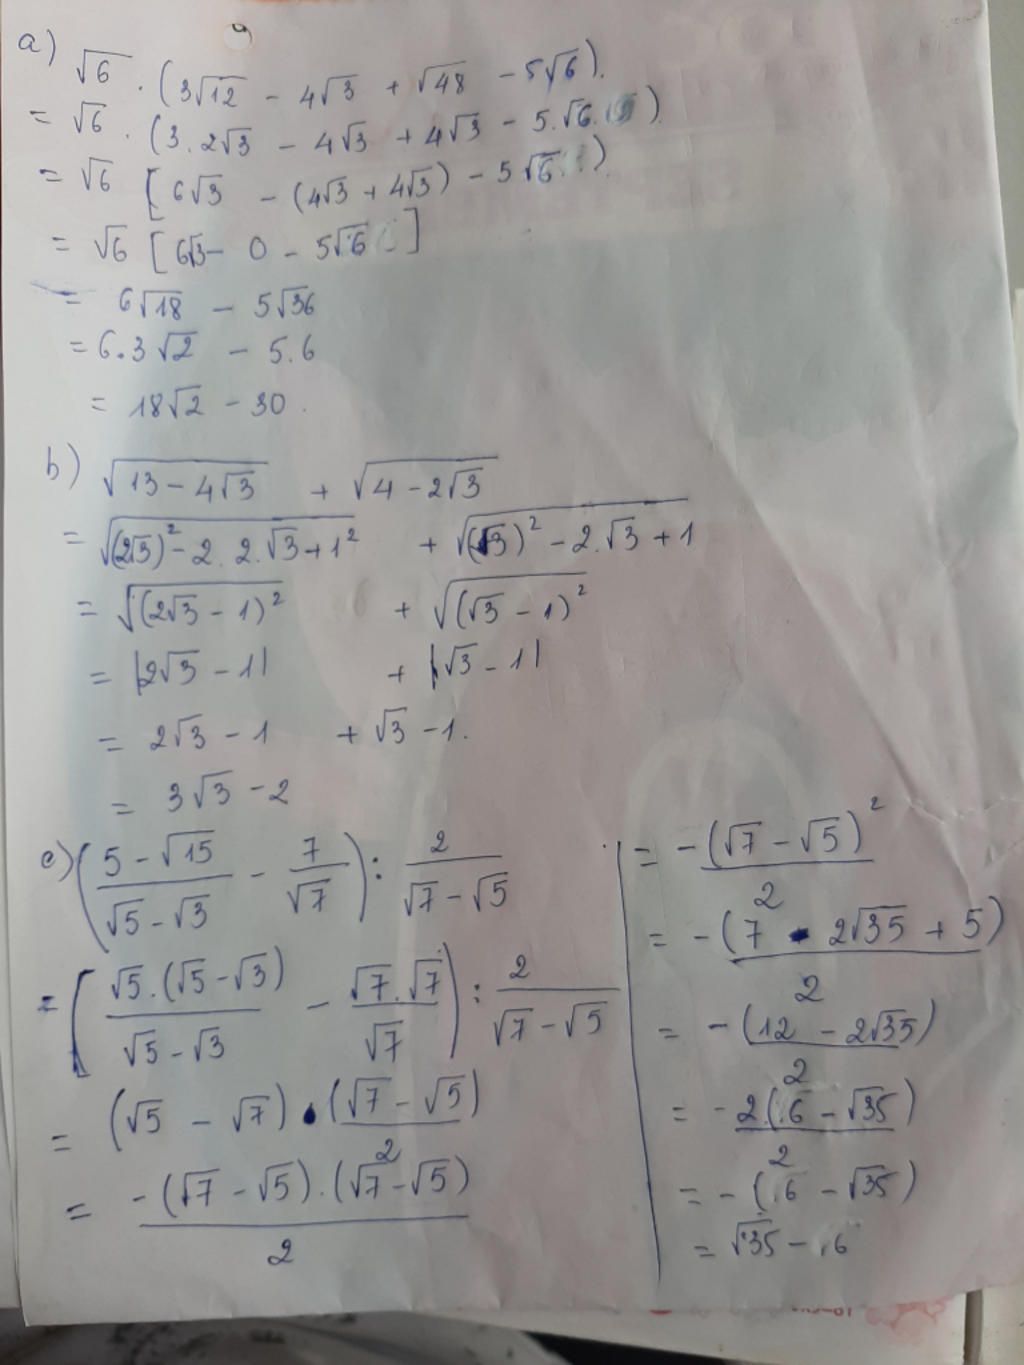 a) √6 . (3√12 - 4√3 + √48 - 5√6).
= √6 . (3.2√3 - 4√3 + 4√3 - 5.√6.)
= √6 [6√3 - (4√3 + 4√3) - 5√6)
= √6 [6√3 - 0 - 5√6]
= 6√18 - 5√36
= 6.3√2 - 5.6
= 18√2 - 30.
b) √(13 - 4√3) + √(4 - 2√3)
= √((2√3)² - 2.2.√3 + 1²) + √((√3)² - 2.√3 + 1)
= √((2√3 - 1)²) + √((√3 - 1)²)
= |2√3 - 1| + |√3 - 1|
= 2√3 - 1 + √3 - 1.
= 3√3 - 2
c) ((5 - √15)/(√5 - √3) - 7/√7) : 2/(√7 - √5)
= [(√5.(√5 - √3))/(√5 - √3) - (√7.√7)/√7) : 2/(√7 - √5)
= (√5 - √7) . (√7 - √5)/2
= (-(√7 - √5).(√7 - √5))/2
= (-(√7 - √5)²)/2
= (-(7 - 2√35 + 5))/2
= (-(12 - 2√35))/2
= (-2(6 - √35))/2
= -(6 - √35)
= √35 - 6